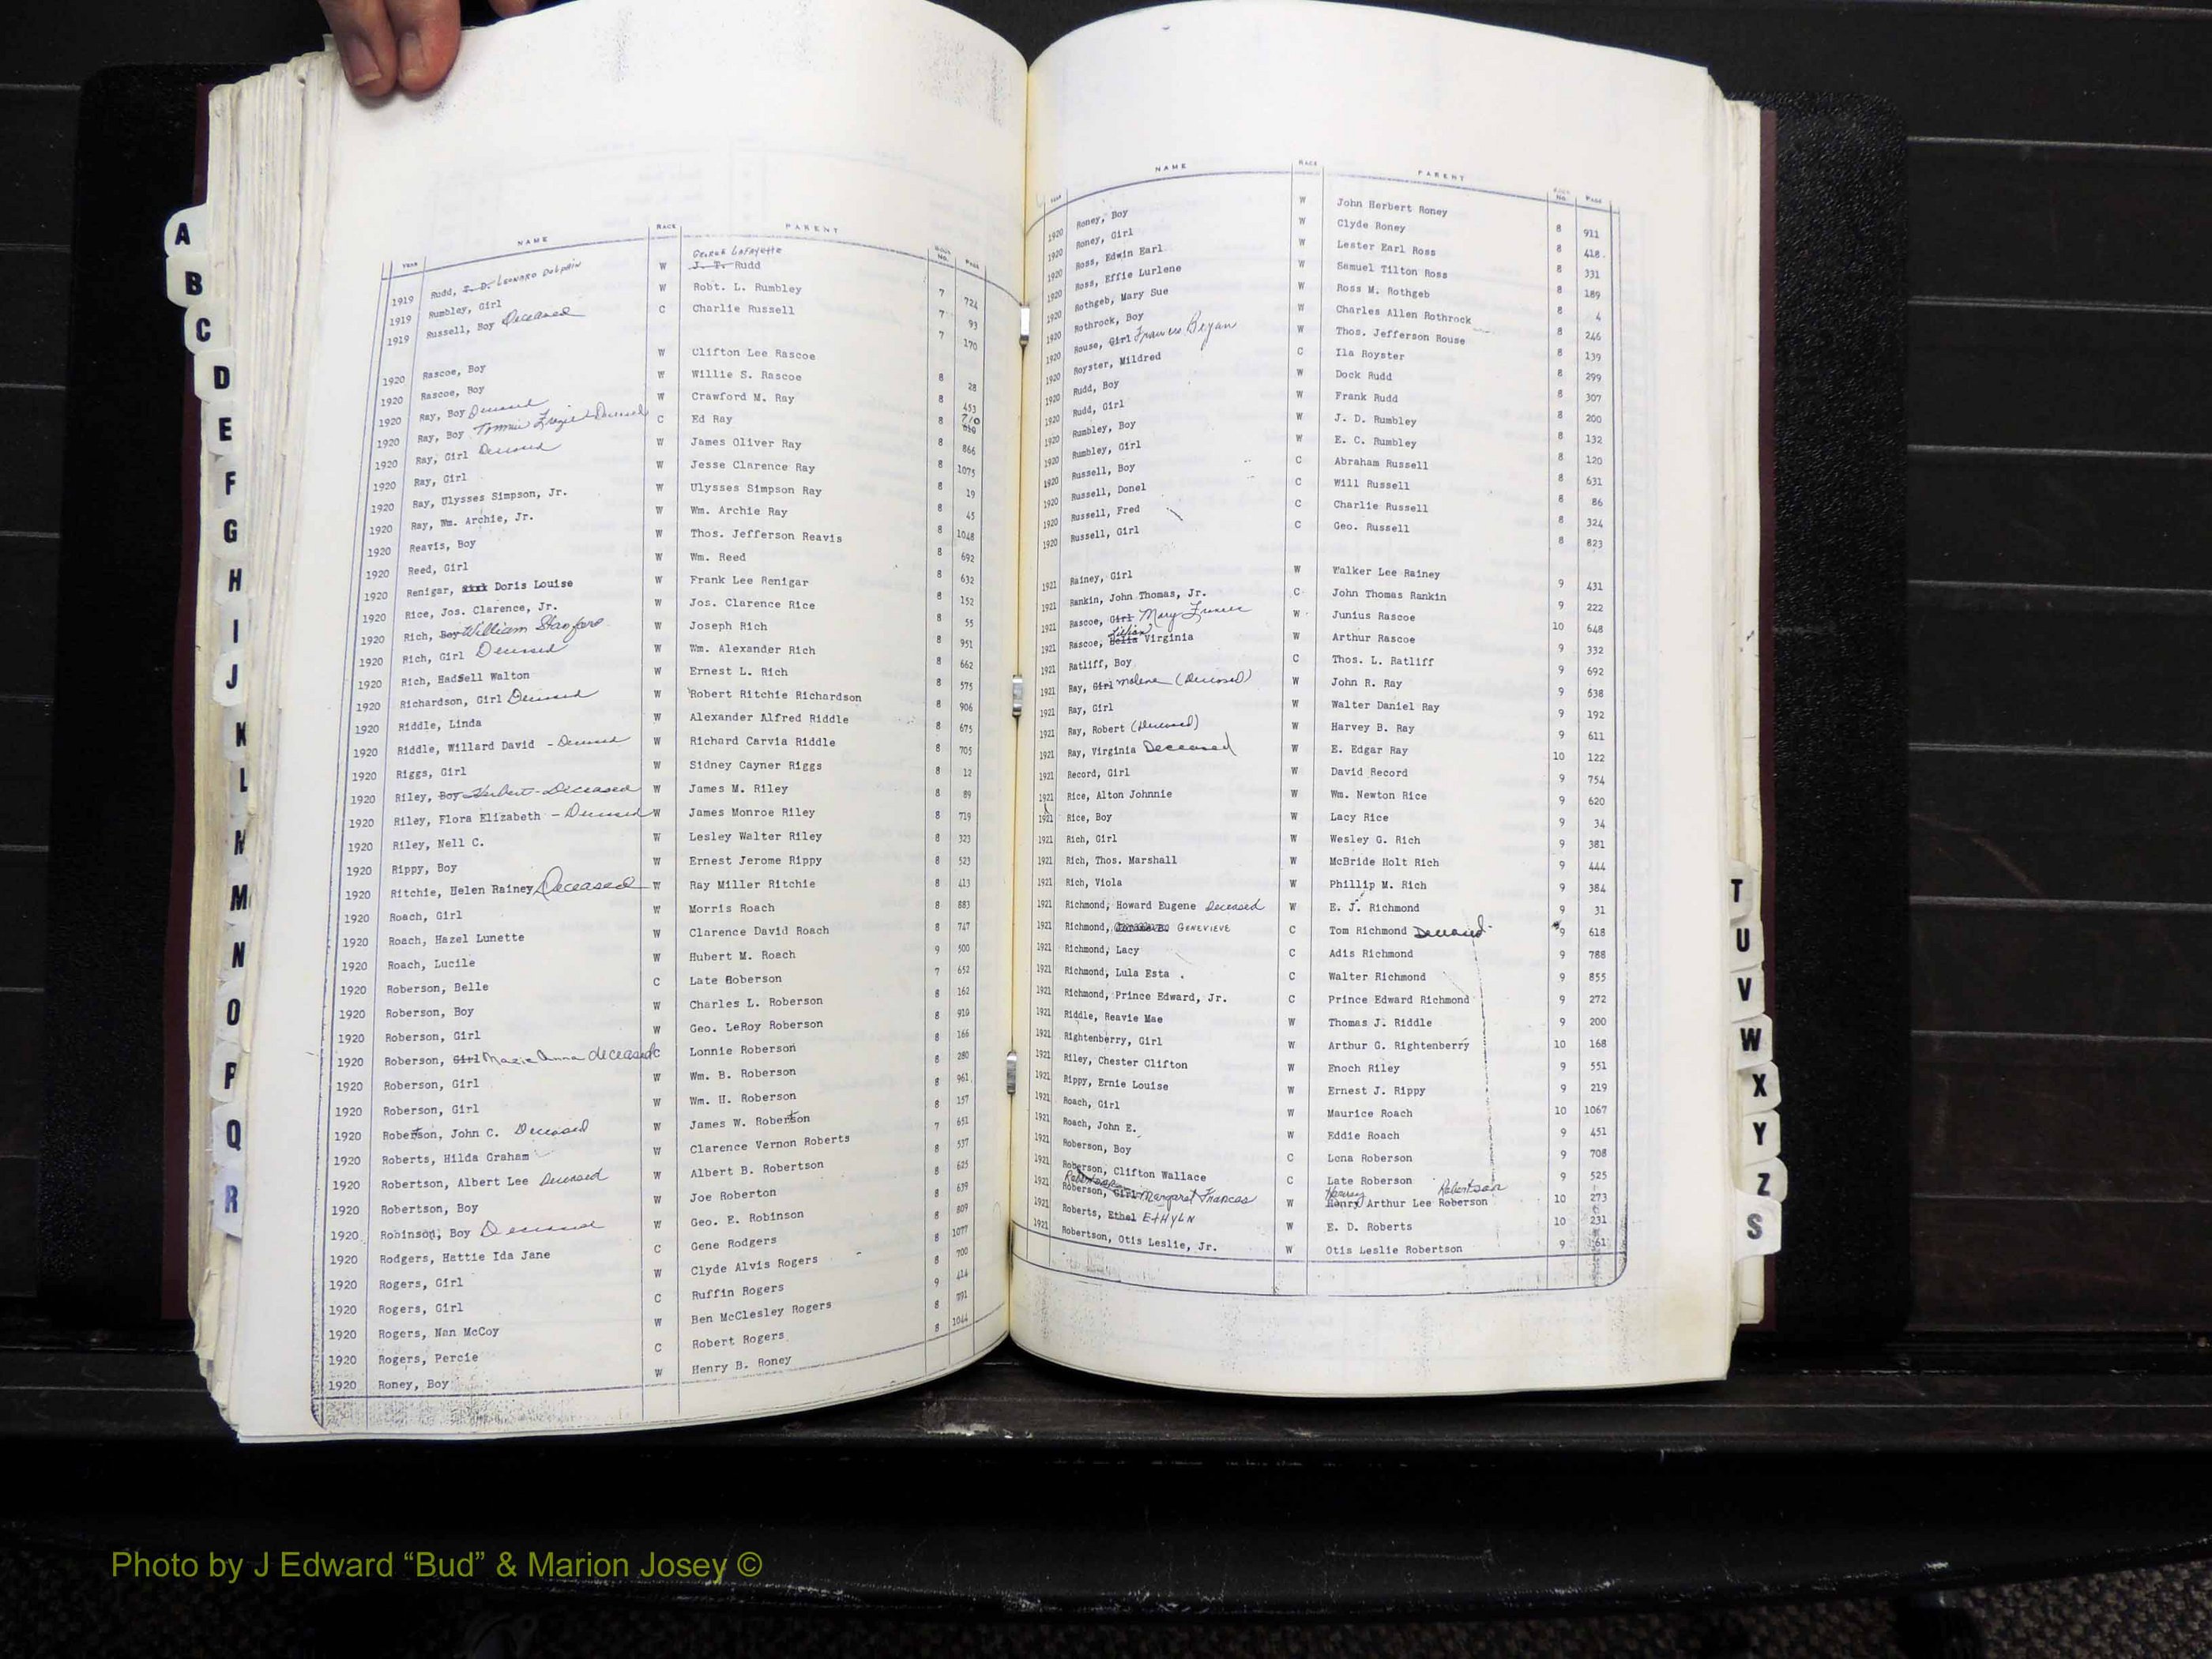 A
B
C
D
E
F
G
H
I
J
K
L
M
N
O
P
Q
R
YEAR NAME RACE PARENT BOOK NO. PAGE
George Lafayette
1919 Rudd, J. D. Leonard Dolphin W J. T. Rudd 7 724
1919 Rumbley, Girl W Robt. L. Rumbley 7 93
1919 Russell, Boy Deceased C Charlie Russell 7 170
1920 Rascoe, Boy W Clifton Lee Rascoe 8 28
1920 Rascoe, Boy W Willie S. Rascoe 8 453
1920 Ray, Boy Deceased W Crawford M. Ray 8 710
1920 Ray, Boy Deceased C Ed Ray 8 866
1920 Ray, Girl Deceased W James Oliver Ray 8 1075
1920 Ray, Girl W Jesse Clarence Ray 8 19
1920 Ray, Ulysses Simpson, Jr. W Ulysses Simpson Ray 8 45
1920 Ray, Wm. Archie, Jr. W Wm. Archie Ray 8 1048
1920 Reavis, Boy W Thos. Jefferson Reavis 8 692
1920 Reed, Girl W Wm. Reed 8 632
1920 Renigar, Doris Louise W Frank Lee Renigar 8 152
1920 Rice, Jos. Clarence, Jr. W Jos. Clarence Rice 8 55
1920 Rich, Boy William Stanford W Joseph Rich 8 951
1920 Rich, Girl Deceased W Wm. Alexander Rich 8 662
1920 Rich, Eadsell Walton W Ernest L. Rich 8 575
1920 Richardson, Girl Deceased W Robert Ritchie Richardson 8 906
1920 Riddle, Linda W Alexander Alfred Riddle 8 675
1920 Riddle, Willard David - Deceased W Richard Carvia Riddle 8 705
1920 Riggs, Girl W Sidney Cayner Riggs 8 12
1920 Riley, Boy Herbert - Deceased W James M. Riley 8 89
1920 Riley, Flora Elizabeth - Deceased W James Monroe Riley 8 719
1920 Riley, Nell C. W Lesley Walter Riley 8 323
1920 Rippy, Boy W Ernest Jerome Rippy 8 523
1920 Ritchie, Helen Rainey Deceased W Ray Miller Ritchie 8 413
1920 Roach, Girl W Morris Roach 8 883
1920 Roach, Hazel Lunette W Clarence David Roach 8 747
1920 Roach, Lucile W Hubert M. Roach 9 500
1920 Roberson, Belle C Late Roberson 7 652
1920 Roberson, Boy W Charles L. Roberson 8 162
1920 Roberson, Girl W Geo. LeRoy Roberson 8 910
1920 Roberson, Girl Mazie Anna deceased C Lonnie Roberson 8 166
1920 Roberson, Girl W Wm. B. Roberson 8 280
1920 Roberson, Girl W Wm. H. Roberson 8 961
1920 Robertson, John C. Deceased W James W. Robertson 8 157
1920 Roberts, Hilda Graham W Clarence Vernon Roberts 7 651
1920 Robertson, Albert Lee Deceased W Albert B. Robertson 8 537
1920 Robertson, Boy W Joe Roberton 8 625
1920 Robinson, Boy Deceased W Geo. E. Robinson 8 639
1920 Rodgers, Hattie Ida Jane C Gene Rodgers 8 809
1920 Rogers, Girl W Clyde Alvis Rogers 8 1077
1920 Rogers, Girl C Ruffin Rogers 8 700
1920 Rogers, Nan McCoy W Ben McClesley Rogers 9 414
1920 Rogers, Percie C Robert Rogers 8 791
1920 Roney, Boy W Henry B. Roney 8 1044
YEAR NAME RACE PARENT BOOK NO. PAGE
1920 Roney, Boy W John Herbert Roney 8 911
1920 Roney, Girl W Clyde Roney 8 418
1920 Ross, Edwin Earl W Lester Earl Ross 8 331
1920 Ross, Effie Lurlene W Samuel Tilton Ross 8 189
1920 Rothgeb, Mary Sue W Ross M. Rothgeb 8 4
1920 Rothrock, Boy W Charles Allen Rothrock 8 246
1920 Rouse, Girl Frances Bryan W Thos. Jefferson Rouse 8 139
1920 Royster, Mildred C Ila Royster 8 299
1920 Rudd, Boy W Dock Rudd 8 307
1920 Rudd, Girl W Frank Rudd 8 200
1920 Rumbley, Boy W J. D. Rumbley 8 132
1920 Rumbley, Girl W E. C. Rumbley 8 120
1920 Russell, Boy C Abraham Russell 8 631
1920 Russell, Donel C Will Russell 8 86
1920 Russell, Fred C Charlie Russell 8 324
1920 Russell, Girl C Geo. Russell 8 823
1921 Rainey, Girl W Walker Lee Rainey 9 431
1921 Rankin, John Thomas, Jr. C John Thomas Rankin 9 222
1921 Rascoe, Girl Mary Frances W Junius Rascoe 10 648
Lillian
1921 Rascoe, Virginia W Arthur Rascoe 9 332
1921 Ratliff, Boy C Thos. L. Ratliff 9 692
1921 Ray, Girl Molene (Deceased) W John R. Ray 9 638
1921 Ray, Girl W Walter Daniel Ray 9 192
1921 Ray, Robert (Deceased) W Harvey B. Ray 9 611
1921 Ray, Virginia Deceased W E. Edgar Ray 10 122
1921 Record, Girl W David Record 9 754
1921 Rice, Alton Johnnie W Wm. Newton Rice 9 620
1921 Rice, Boy W Lacy Rice 9 34
1921 Rich, Girl W Wesley G. Rich 9 381
1921 Rich, Thos. Marshall W McBride Holt Rich 9 444
1921 Rich, Viola W Phillip M. Rich 9 384
1921 Richmond, Howard Eugene deceased W E. J. Richmond 9 31
1921 Richmond, GENEVIEVE C Tom Richmond Deceased 9 618
1921 Richmond, Lacy C Adis Richmond 9 788
1921 Richmond, Lula Esta C Walter Richmond 9 855
1921 Richmond, Prince Edward, Jr. C Prince Edward Richmond 9 272
1921 Riddle, Reavie Mae W Thomas J. Riddle 9 200
1921 Rightenberry, Girl W Arthur G. Rightenberry 10 168
1921 Riley, Chester Clifton W Enoch Riley 9 551
1921 Rippy, Ernie Louise W Ernest J. Rippy 9 219
1921 Roach, Girl W Maurice Roach 10 1067
1921 Roach, John E. W Eddie Roach 9 451
1921 Roberson, Boy C Lena Roberson 9 708
1921 Roberson, Clifton Wallace C Late Roberson 9 525
Robertson Harvey Robertson
1921 Roberson, Girl Margaret Frances W Henry Arthur Lee Roberson 10 273
1921 Roberts, Ethel EtHYLN W E. D. Roberts 10 231
1921 Robertson, Otis Leslie, Jr. W Otis Leslie Robertson 9 161
T
U
V
W
X
Y
Z
S
Photo by J Edward “Bud” & Marion Josey ©